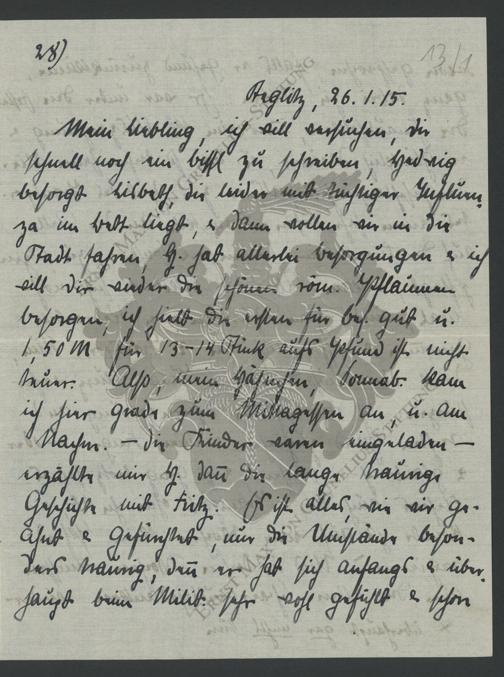 28)
13/1
Steglitz, 26.1.15.
Mein Liebling, ich will versuchen, dir
schnell noch ein bissl zu schreiben, Hedwig
besorgt Lisbeth, die leider mit tüchtiger Influen-
za im Bett liegt & dann wollen wir in die
Stadt fahren, H. hat allerlei Besorgungen & ich
will dir wieder die schönen röm. Pflaumen
besorgen, ich hielt die ersten für bes. gut u.
1,50 M für 13-14 Stück aufs Pfund ist nicht
teuer. Also, mein Häschen, Sonnab. kam
ich hier grade zum Mittagessen an, u. am
Nachm. – die Kinder waren eingeladen –
erzählte mir H. dann die lange traurige
Geschichte mit Fritz. Es ist alles, wie wir ge-
ahnt & gefürchtet, nur die Umstände beson-
ders traurig, denn er hat sich anfangs & über-
haupt beim Milit. sehr wohl gefühlt & schon